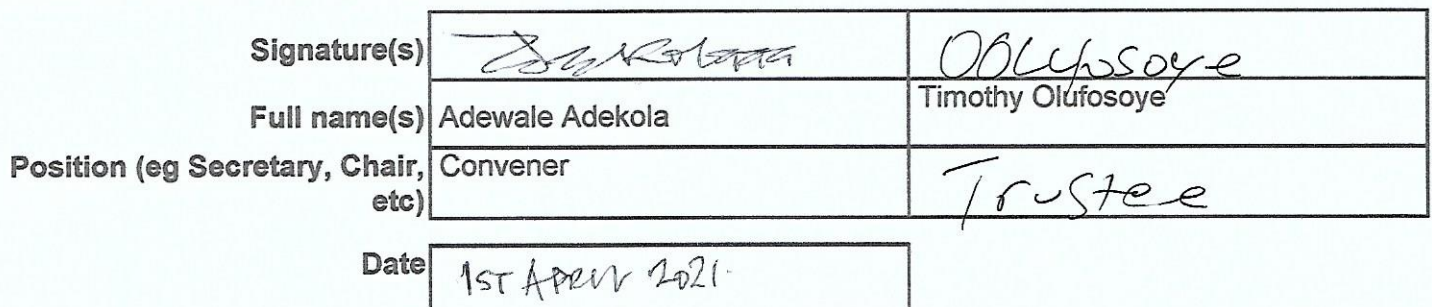 Signature(s) OOlufosoye
Full name(s) Adewale Adekola Timothy Olufosoye
Position (eg Secretary, Chair, Convener Trustee
etc)
Date 1ST APRIL 2021.